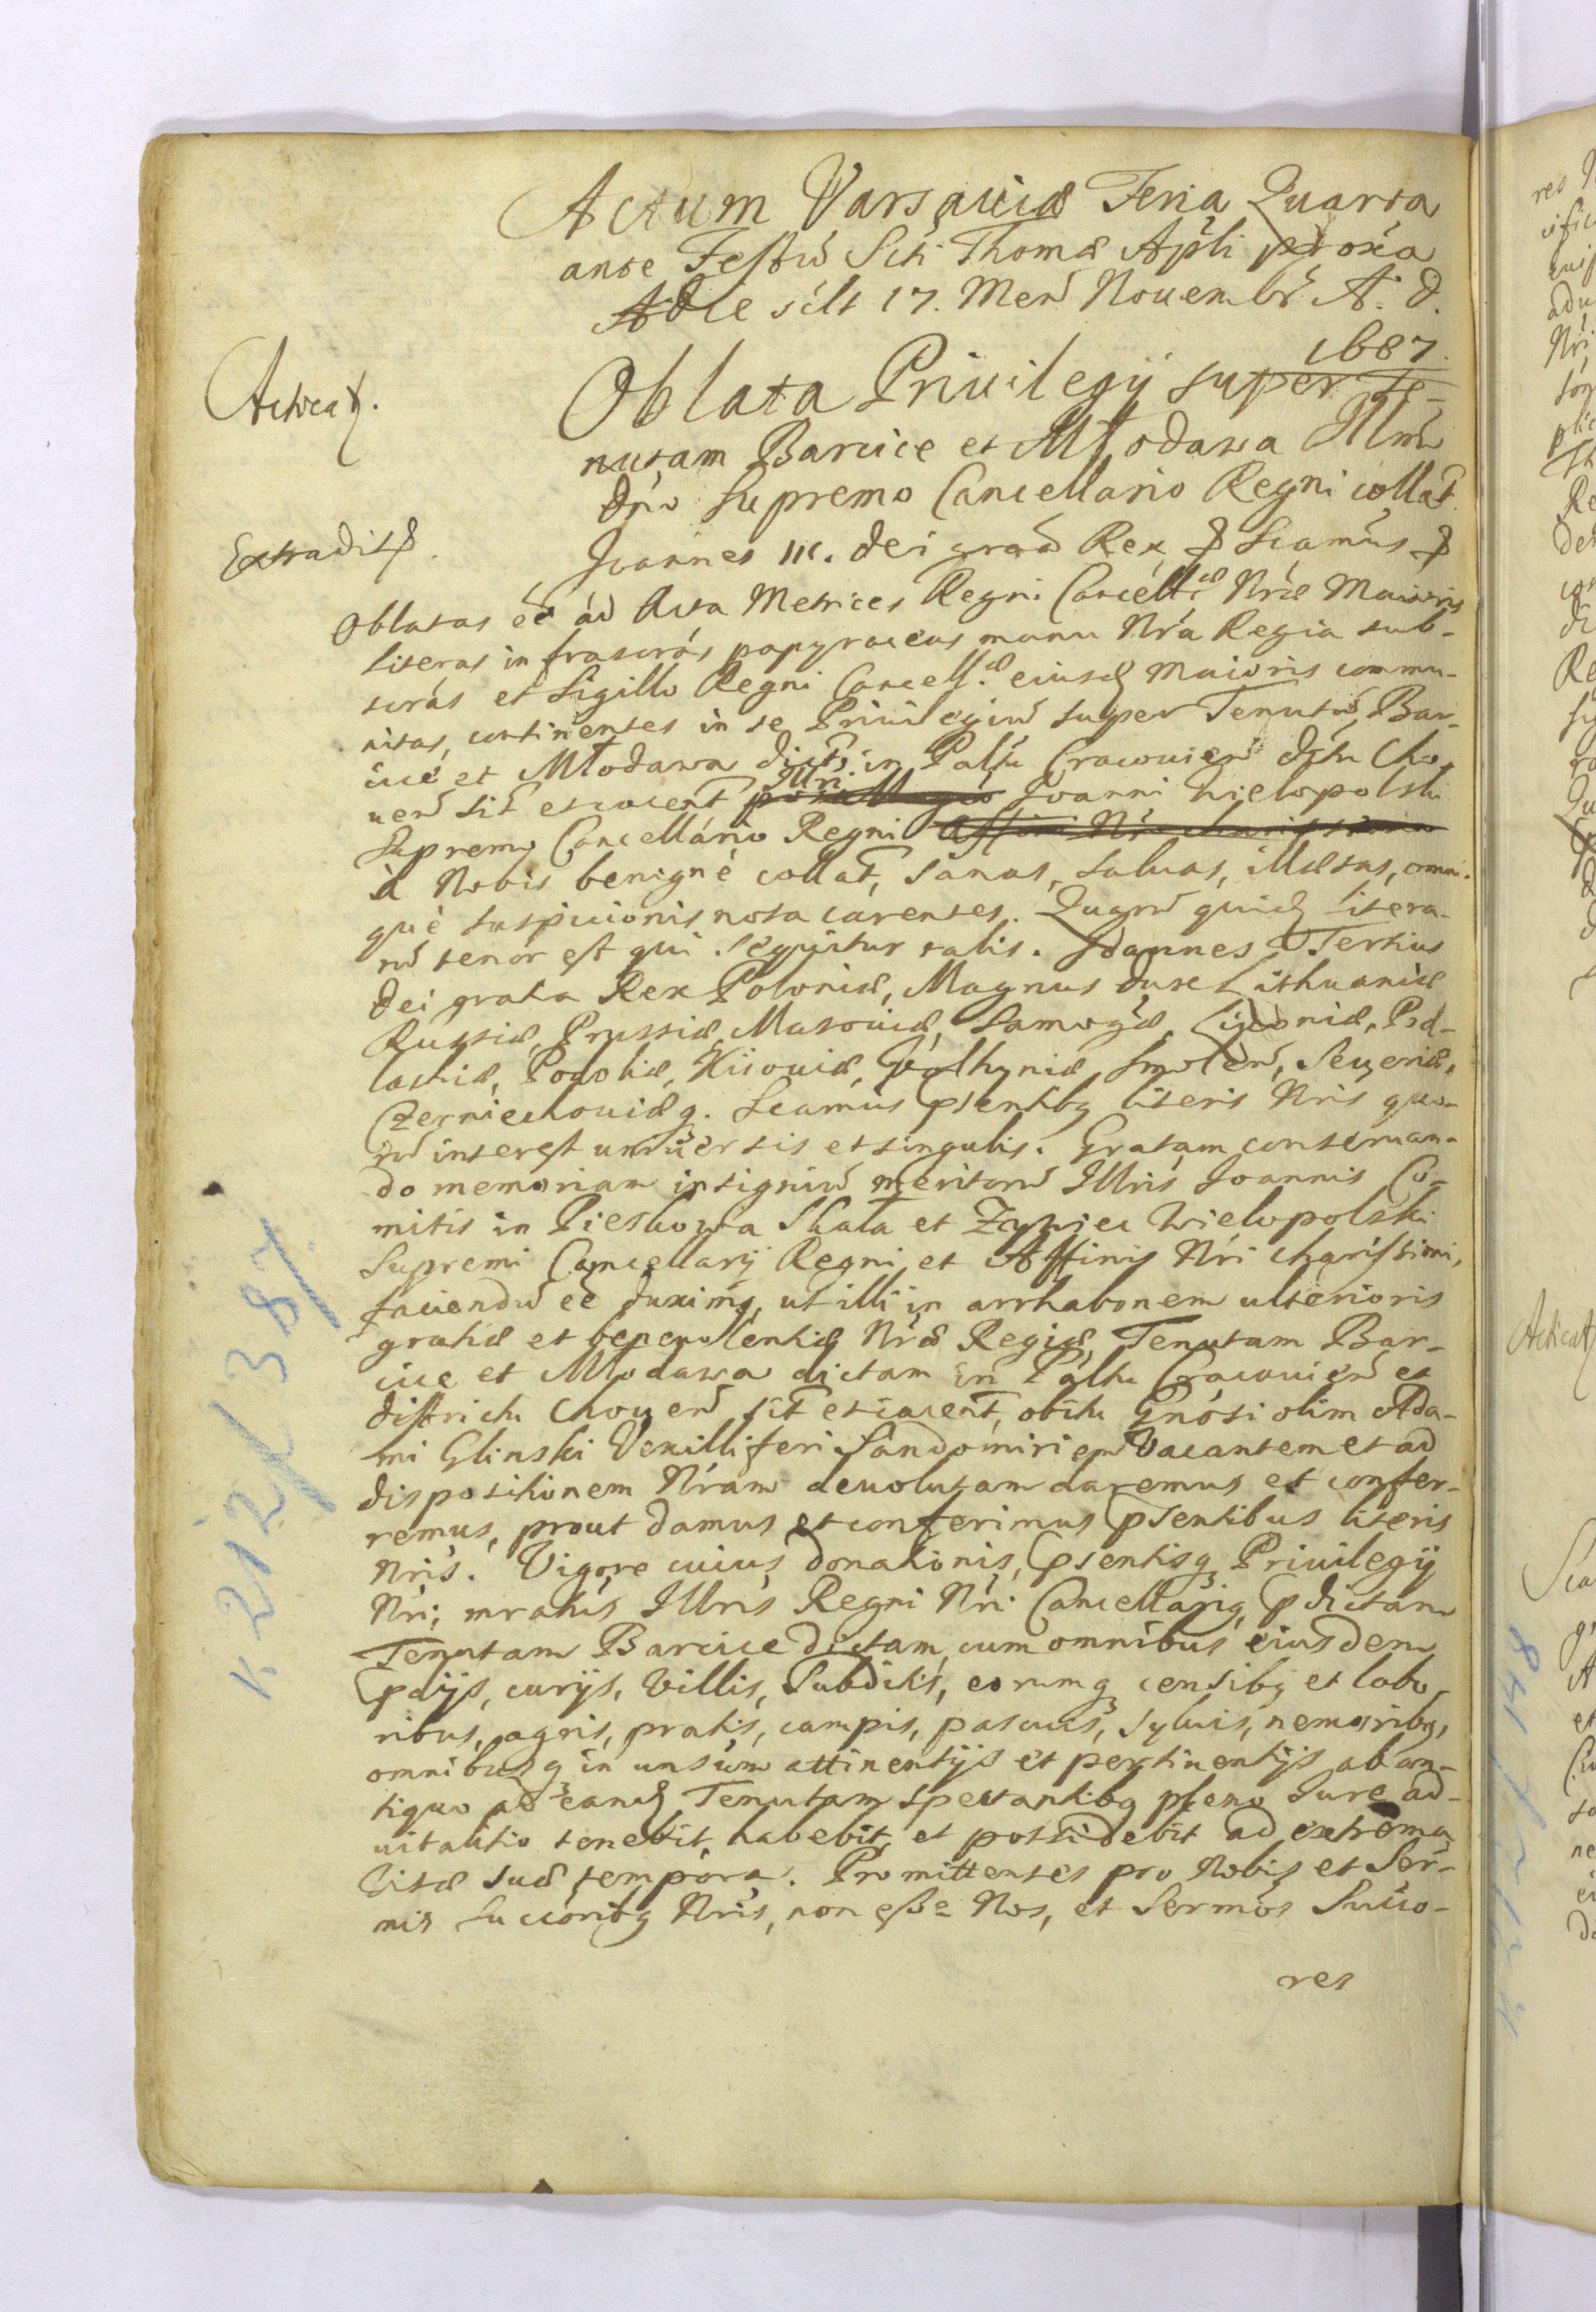 Actum Varsaviæ Feria Quarta
ante Festũ Scti Thomæ Apli proxa
die silt 17. Mens Novembr A. D.
1687.
Acticat.
Oblata Privilegij super Te-
nutam Barcice et Młodawa Illmo
Dno Supremo Cancellario Regni collat
Extradit.
Joannes III. Dei gratia Rex Scamus
Oblatas eē ad Acta Metrices Regni Cancellæ Nræ Maioris
literas infrascras papyraceas manu Nra Regia sub-
scras et Sigillo Regni Cancell. eiusd Maioris commu-
nitas, continentes in se Privilegiũ super Tenutã Bar-
cice et Młodawa dict in Paltu Cracovien dttu Cho-
uen sit et iacent Illri Joanni Wielopolski
Supremo Cancellario Regni Affini Nro charissimo
à Nobis benignè collat, sanas, saluas, illæsas, omni-
què suspicionis nota carentes. Quarũ quid litera-
rũ tenor est qui sequitur talis. Joannes Tertius
Dei gratia Rex Poloniæ, Magnus Dux Lithuaniæ
Russiæ, Prussiæ, Masoviæ, Samogæ, Livoniæ, Pod-
lachiæ, Podoliæ, Kijoviæ, Volhyniæ, Smolen, Seveniæ,
Czerniechoviæq. Scamus psentibq literis Nris quo-
rũ interest universis et singulis. Gratam conservan-
do memoriam insigniũ meritorũ Illris Joannis Co-
mitis in Pieskowa Skała et Zywiec Wielopolski
Supremi Cancellarij Regni et Affinis Nri charissimi,
faciendũ eē duximq, ut illi in arrhabonem ulterioris
gratiæ et benevolentiæ Nræ Regiæ, Tenutam Bar-
cice et Młodawa dictam in Paltu Cracovien et
districtu Chouen sit et iacent, obitu Gnosi olim Ada-
mi Glinski Vexilliferi Sandomirien vacantem et ad
dispositionem Nram devolutam daremus et confer-
remus, prout damus et conferimus psentibus literis
Nris. Vigore cuius donationis, psentisq Privilegij
Nri, mratus Illris Regni Nri Cancellariq pdictam
Tenutam Barcice dictam, cum omnibus eiusdem
pdijs, curijs, villis, subditis, eorumq censibq et labo-
ribus, agris, pratis, campis, pascuis, sylvis, nemoribq,
omnibusq in unsum attinentijs et pertinentijs ab an-
tiquo ad eand Tenutam spectantibq pleno Jure ad-
vitalitio tenebit, habebit, et possidebit ad extrema
vitæ suæ tempora. Promittentes pro Nobis et Ser-
mis Succoribq Nris, non esse Nos, et Sermos Succo-
res
K 212/387